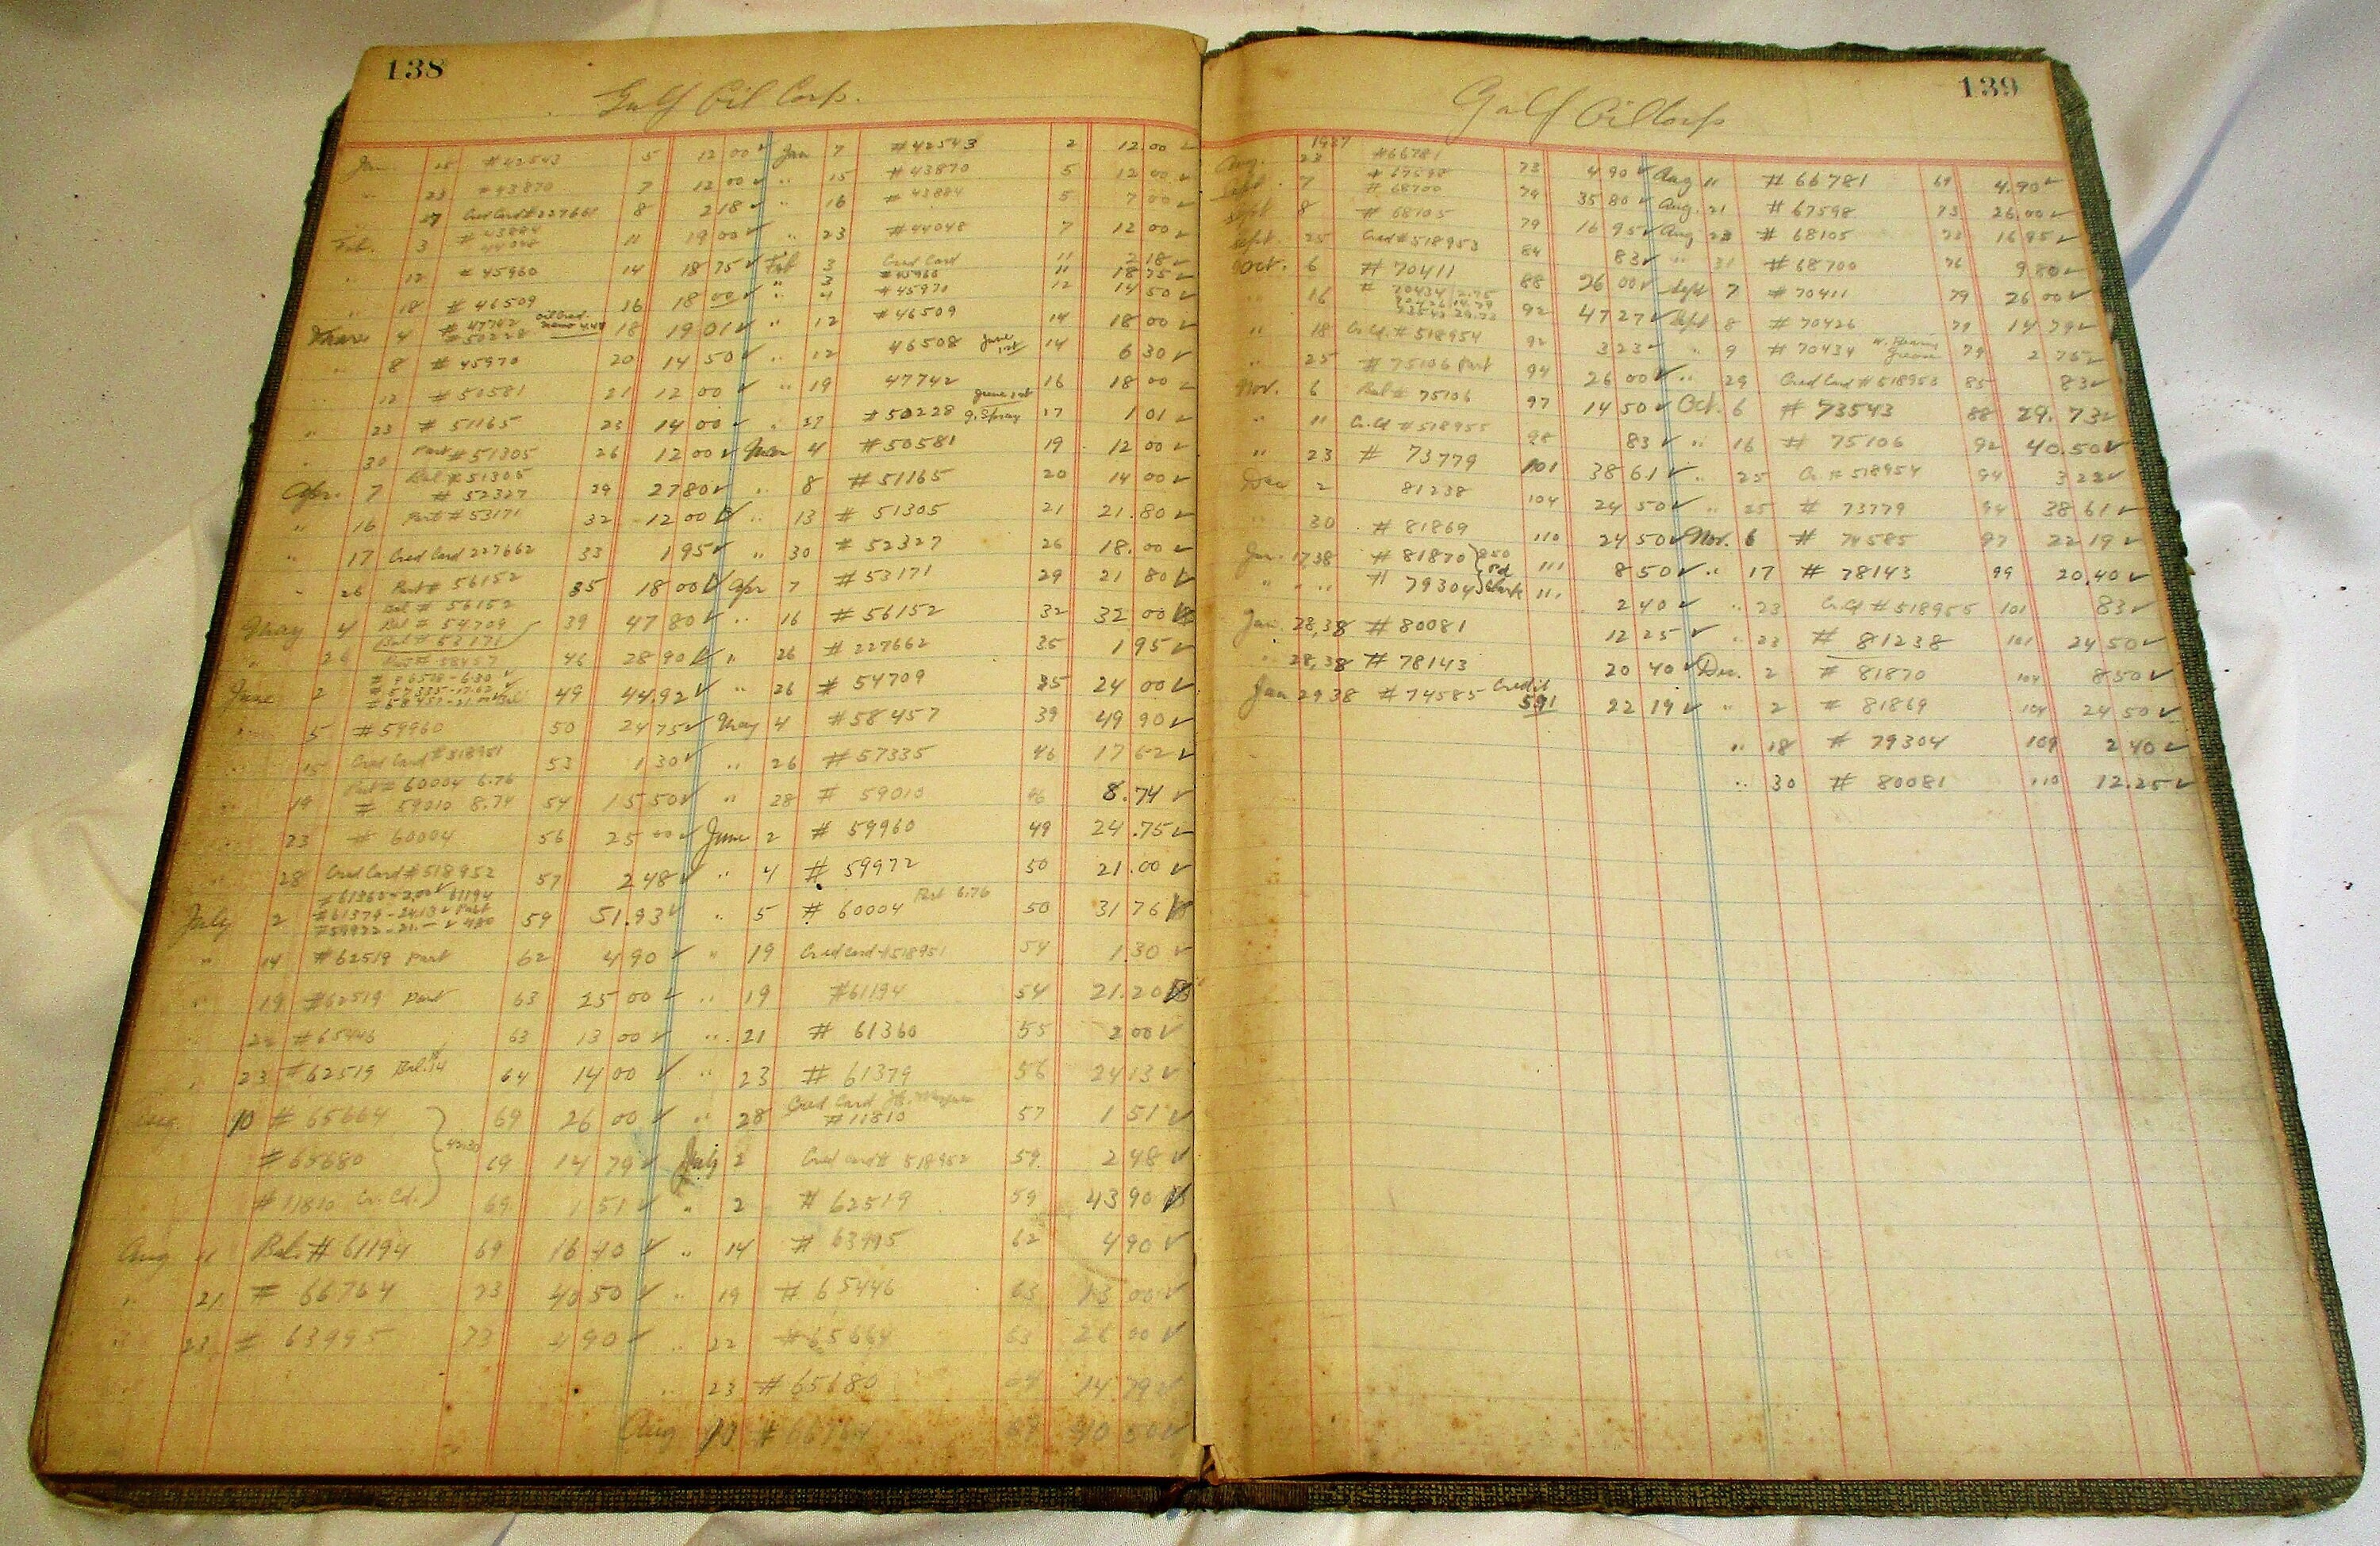 138
Gulf Oil Corp.
Jan. #42543 5 12 00 ✓ Jan 7 #42543 2 12.00 ✓
" 23 #43870 7 12 00 ✓ " 15 #43870 5 12 00 ✓
27 Cred Card #227661 8 2 18 ✓ " 16 #43884 5 7 00 ✓
Feb. 3 #43884 44048 11 19 00 ✓ " 23 #44048 7 12 00 ✓
" 12 #45960 14 18 75 ✓ Feb 3 Cred Card 11 2 18 ✓
" 3 #45960 11 18 75 ✓
" 18 #46509 16 18 00 ✓ " 4 #45970 12 14 50 ✓
4 #47742 #50228 18 19 01 ✓ " 12 #46509 14 18 00 ✓
" 8 #45970 20 14 50 ✓ " 12 46508 14 6 30 ✓
12 #50581 21 12 00 ✓ " 19 47742 16 18 00 ✓
" 23 #51165 23 14 00 ✓ " 27 #50228 g. Spray 17 1 01 ✓
" 30 Part #51305 26 12 00 ✓ Mar 4 #50581 19 12 00 ✓
Apr. 7 Bal #51305 #52327 29 27 80 ✓ " 8 #51165 20 14 00 ✓
" 16 Part #53171 32 12 00 ✓ " 13 #51305 21 21.80 ✓
" 17 Cred Card 227662 33 1 95 ✓ " 30 #52327 26 18.00 ✓
" 26 Part #56152 35 18 00 ✓ Apr 7 #53171 29 21 80 ✓
May 4 Bal #56152 Bal #54709 Bal #53171 39 47 80 ✓ " 16 #56152 32 32 00 ✓
" 26 Part #58457 46 28 90 ✓ " 26 #227662 35 1 95 ✓
June 2 #46508-6.30 ✓ #57335-17.62 ✓ #58457-21.00 Bal 49 44.92 ✓ " 26 #54709 35 24 00 ✓
" 5 #59960 50 24 75 ✓ May 4 #58457 39 49 90 ✓
" 15 Cred Card #518951 53 1 30 ✓ " 26 #57335 46 17 62 ✓
" 19 Part #60004 6.76 # 59010 8.74 54 15 50 ✓ " 28 # 59010 46 8.74 ✓
" 23 # 60004 56 25 00 ✓ June 2 # 59960 49 24.75 ✓
" 28 Cred Card #518952 57 2 48 ✓ " 4 # 59972 50 21.00 ✓
July 2 #61360-2.00 ✓ 61194 #61379-24.13 ✓ Part 59 51.93 ✓ " 5 # 60004 Part 6.76 50 31 76
" 14 #62519 Part 62 4 90 ✓ " 19 Cred Card #518951 54 1 30 ✓
" 19 #62519 Part 63 25 00 ✓ " 19 #61194 54 21.20
" #65446 63 13 00 ✓ " 21 # 61360 55 2 00 ✓
" 23 #62519 Bal. 14 64 14 00 ✓ " 23 # 61379 56 24 13 ✓
10 # 65664 69 26 00 ✓ " 28 Cred Card #11810 57 1 51 ✓
#65680 42.30 69 14 79 ✓ July 2 Cred Card # 518952 59 2 48 ✓
#11810 Cr. Cd. 69 1 51 ✓ " 2 # 62519 59 43 90
Aug 11 Bal. # 61194 69 16 40 ✓ " 14 # 63995 62 4 90 ✓
" 21 # 66764 73 40 50 ✓ " 19 # 65446 63 13 00 ✓
" 23 # 63995 73 4 90 ✓ " 22 #65664 63 26 00 ✓
" 23 #65680 64 14 79 ✓
Aug 10 # 66764 69 40 50 ✓
139
Gulf Oil Corp
1937
Aug. 23 #66781 73 4 90 ✓ Aug 11 #66781 69 4.90 ✓
Sept 7 #67598 #68700 79 35 80 ✓ Aug. 21 #67598 73 26.00 ✓
Sept 8 # 68105 79 16 95 ✓ Aug 23 # 68105 73 16 95 ✓
Sept. 25 Cred #518953 84 83 ✓ " 31 #68700 76 9 80 ✓
Oct. 6 # 70411 88 26 00 ✓ Sept 7 #70411 79 26 00 ✓
" 16 # 70434 2.75 70426 14.79 73543 29.73 92 47 27 ✓ Sept 8 # 70426 79 14 79 ✓
" 18 Cr. Cd. #518954 92 3 23 ✓ " 9 # 70434 79 2 75 ✓
" 25 # 75106 Part 94 26 00 ✓ " 29 Cred Card #518953 85 83 ✓
Nov. 6 Bal # 75106 97 14 50 ✓ Oct. 6 # 73543 88 29.73 ✓
" 11 Cr. Cd #518955 98 83 ✓ " 16 # 75106 92 40.50 ✓
" 23 # 73779 101 38 61 ✓ " 25 Cr. #518954 94 3 23 ✓
Dec 2 81238 104 24 50 ✓ " 25 # 73779 94 38 61 ✓
30 # 81869 110 24 50 ✓ Nov. 6 # 74585 97 22 19 ✓
Jan. 1738 # 81870 8.50 111 8 50 ✓ " 17 # 78143 99 20.40 ✓
" " " # 79304 111 2 40 ✓ " 23 Cr. Cd #518955 101 83 ✓
Jan. 28,38 # 80081 12 25 ✓ " 23 # 81238 101 24 50 ✓
" 28,38 # 78143 20 40 ✓ Dec. 2 # 81870 104 8 50 ✓
Jan 29 38 # 74585 Credit 591 22 19 ✓ " 2 # 81869 104 24 50 ✓
" 18 # 79304 109 2 40 ✓
" 30 # 80081 110 12.25 ✓